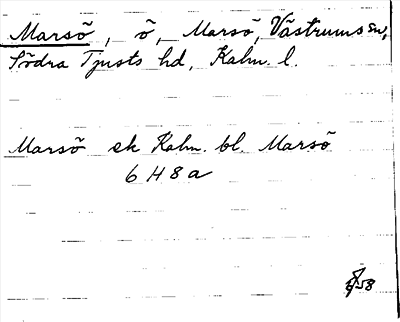 Marsö, ö, Marsö, Västrums sn,
Södra Tjusts hd, Kalm. l.
Marsö ek Kalm. bl. Marsö
6 H 8 a